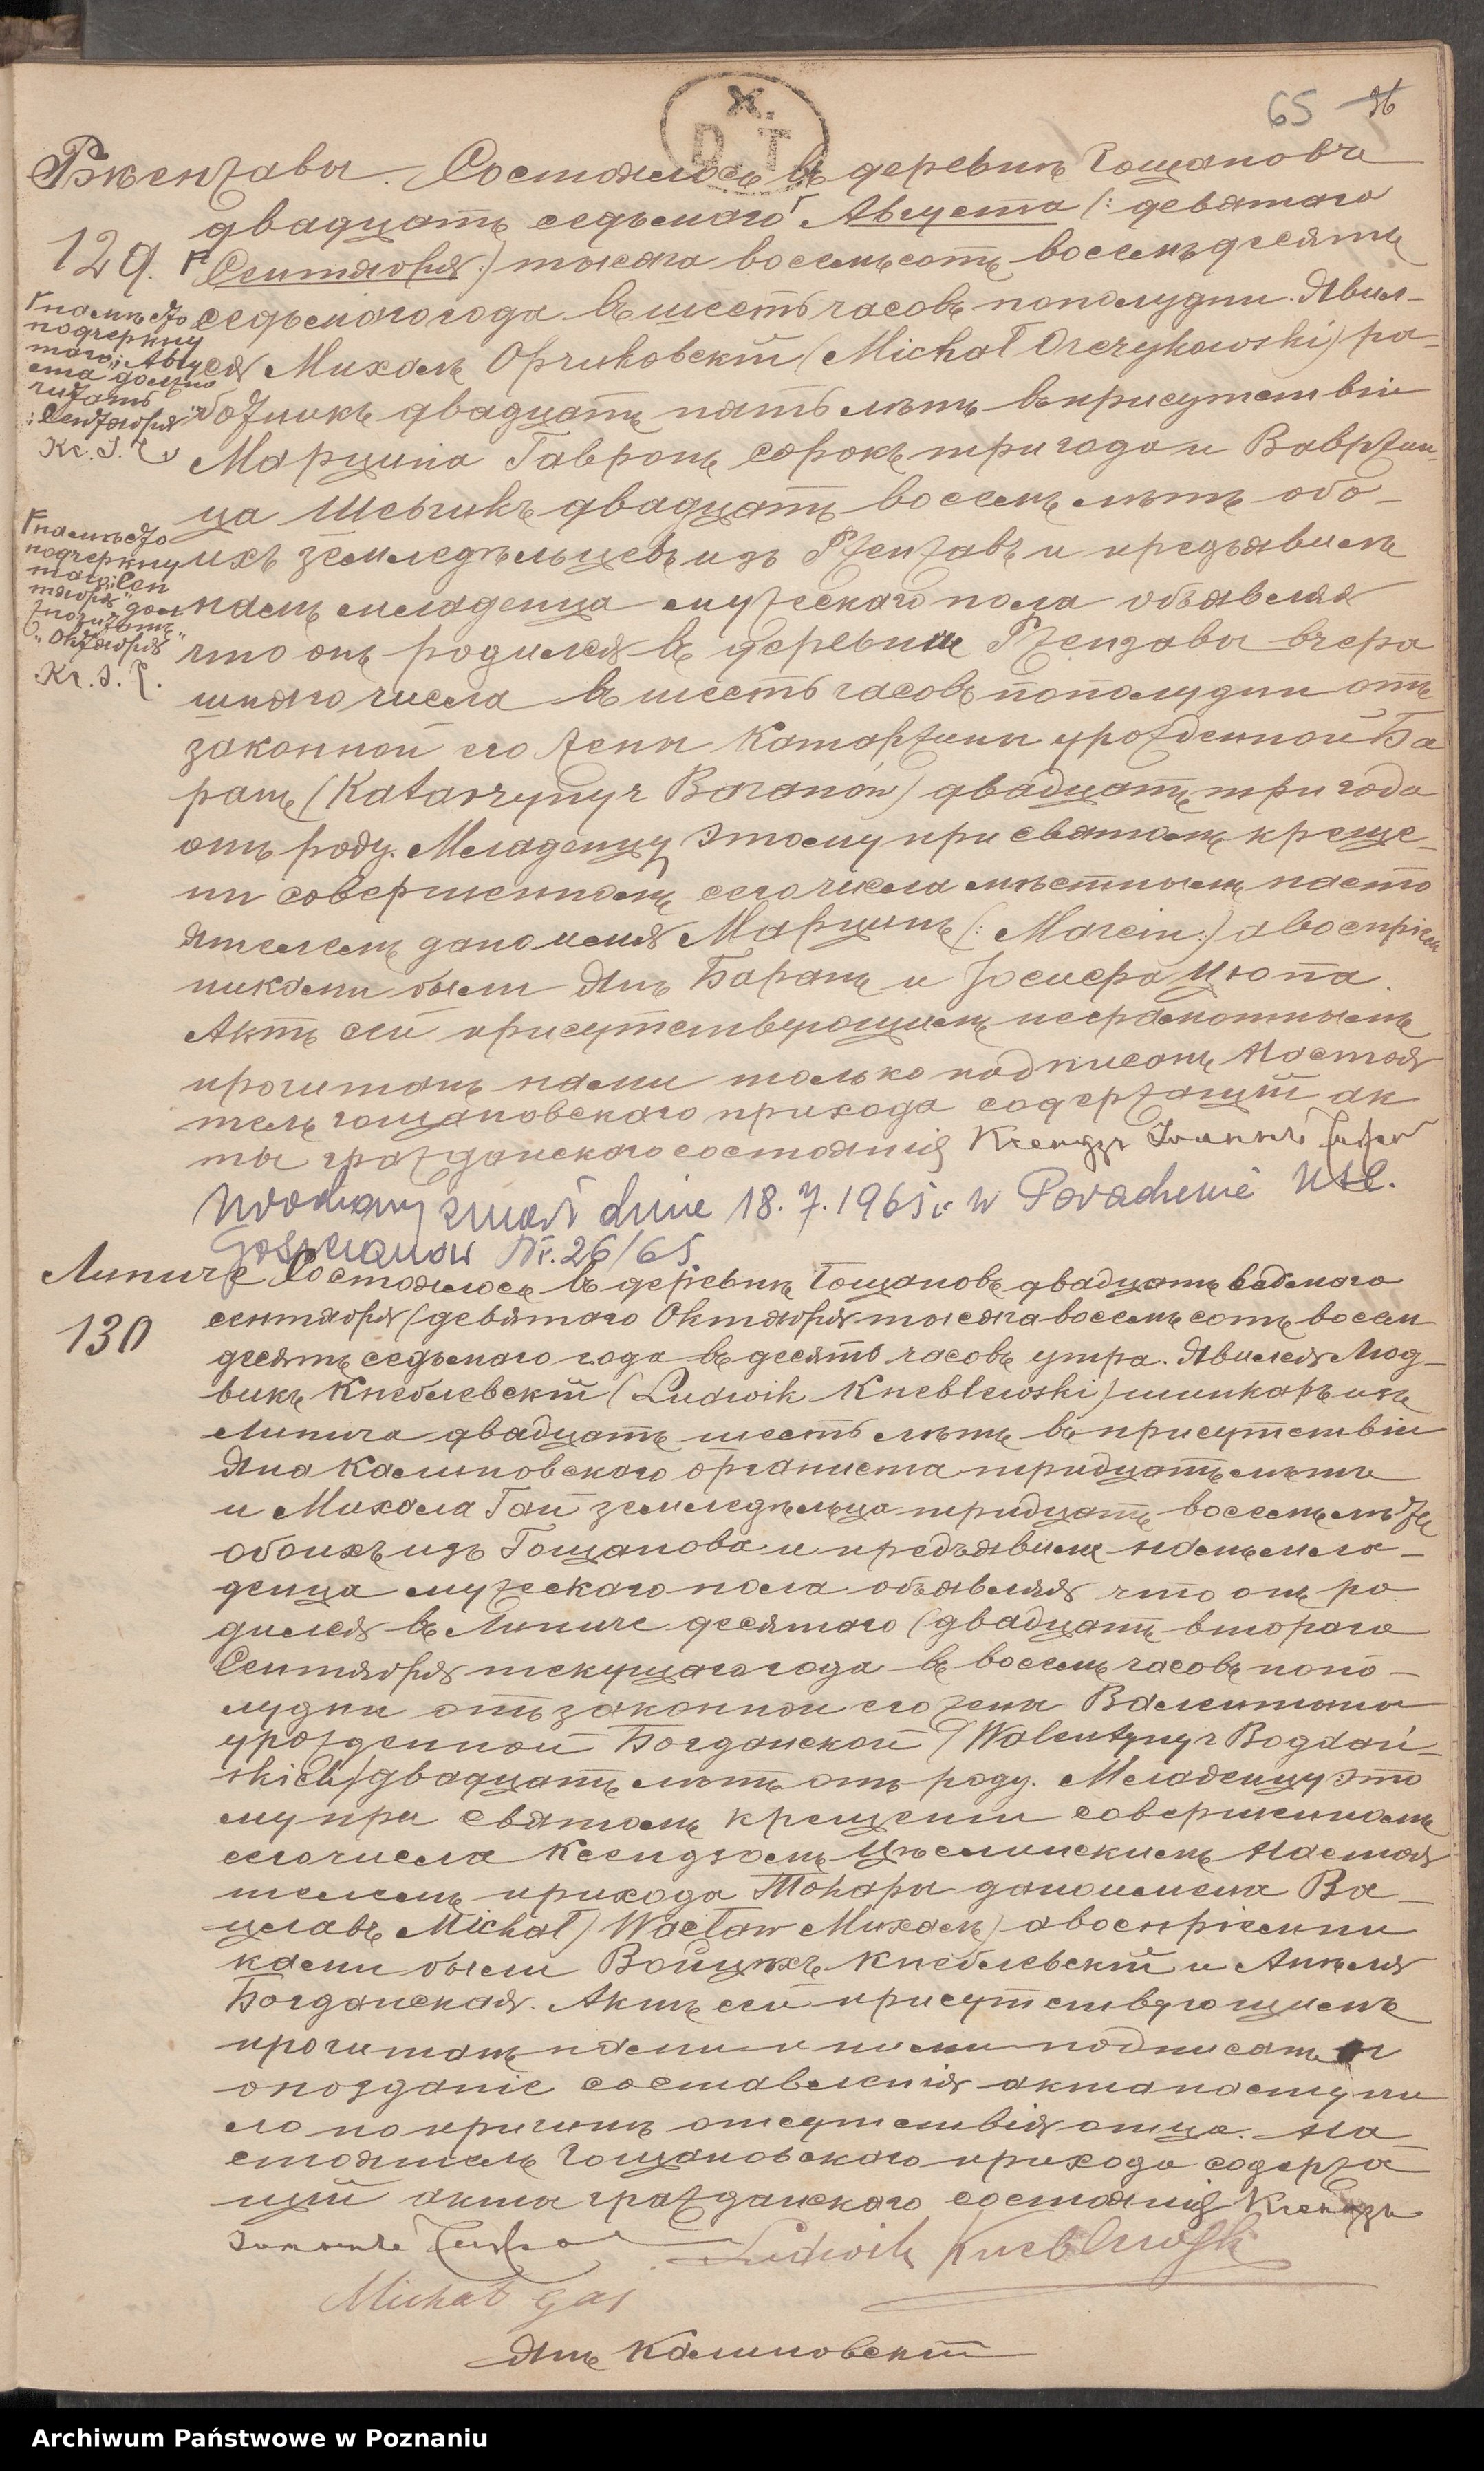 65 96
X.
D. T
Ржензавы. Состоялось въ деревнѣ Гощановѣ
129.
двадцать седьмаго Августа (: девятаго
Сентября :) тысяча восемьсотъ восемьдесятъ
седьмаго года въ шесть часовъ пополудни. Явил-
ся Михалъ Орчиковскій (Michał Orczykowski) ра-
ботникъ двадцать пять лѣтъ въ присутствіи
Марцина Гавронъ сорокъ три года и Вавржин-
ца Шевчикъ двадцать восемь лѣтъ обо-
ихъ земледѣльцевъ изъ Ржензавъ и предъявилъ
намъ младенца мужескаго пола объявляя
что онъ родился въ деревнѣ Ржензавы вчера
шняго числа въ шесть часовъ пополудни отъ
законной его жены Катаржины урожденной Ба
ранъ (Katarzyny z Baranów) двадцать три года
отъ роду. Младенцу этому при святомъ креще-
ніи совершенномъ сего числа мѣстнымъ насто
ятелемъ дано имя Марцинъ (: Marcin :) а воспріем
никами были Янъ Баранъ и Юзефа Цюпа.
Актъ сей присутствующимъ неграмотнымъ
прочитанъ нами только подписанъ Настоя
тель гощановскаго прихода содержащій ак
ты гражданскаго состоянія Ксендзъ
Г вмѣсто
подчеркну
таго „Авгу
ста" должно
читать
„Сентября"
Кс. І.
Г вмѣсто
подчеркну
таго „Сен
тября" дол
жно читать
„Октября"
Кс. І.
zmarł dnia 18.7.1965 r. w USC.
Goszczanow Nr. 26/65
Липиче Состоялось въ деревнѣ Гощановѣ двадцать седьмаго
130
сентября (девятаго Октября тысяча восемьсотъ восем
десятъ седьмаго года въ десять часовъ утра. Явился Люд-
викъ Кнеблевскій (Ludwik Kneblewski) шинкарь изъ
Липича двадцать шесть лѣтъ въ присутствіи
Яна Калиновскаго органиста тридцать лѣтъ
и Михала Гай земледѣльца тридцать восемь лѣтъ
обоихъ изъ Гощанова и предъявилъ намъ мла-
денца мужескаго пола объявляя что онъ ро
дился въ Липиче десятаго (двадцать втораго
Сентября текущаго года въ восемь часовъ попо-
лудни отъ законной его жены Валентины
урожденной Богданской (Walentyny z Bogdań-
skich) двадцать лѣтъ отъ роду. Младенцу это
му при святомъ крещеніи совершенномъ
сего числа Ксендзомъ Цѣслинскимъ Настоя
телемъ прихода Токары даны имена Ва-
цлавъ Michał) Wacław Михалъ) а воспріемни
ками были Войцѣхъ Кнеблевскій и Анеля
Богданская. Актъ сей присутствующимъ
прочитанъ нами и ними подписанъ
опозданіе составленія акта наступи
ло по причинѣ отсутствія отца. На-
стоятель Гощановскаго прихода содержа
щій акты гражданскаго состоянія Ксендзъ
Ludwik Kneblewski
Michał Gaj
Янъ Калиновскій
Archiwum Państwowe w Poznaniu